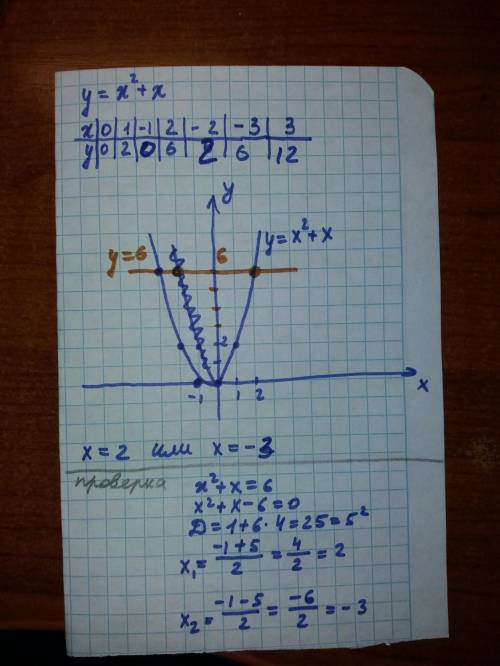 y = x² + x
x | 0 | 1 | -1 | 2 | -2 | -3 | 3
y | 0 | 2 | 0 | 6 | 2 | 6 | 12
y
y = 6
6
y = x² + x
2
-1 1 2 x
x = 2 или x = -3
проверка
x² + x = 6
x² + x - 6 = 0
D = 1 + 6 · 4 = 25 = 5²
x₁ = \frac{-1+5}{2} = \frac{4}{2} = 2
x₂ = \frac{-1-5}{2} = \frac{-6}{2} = -3